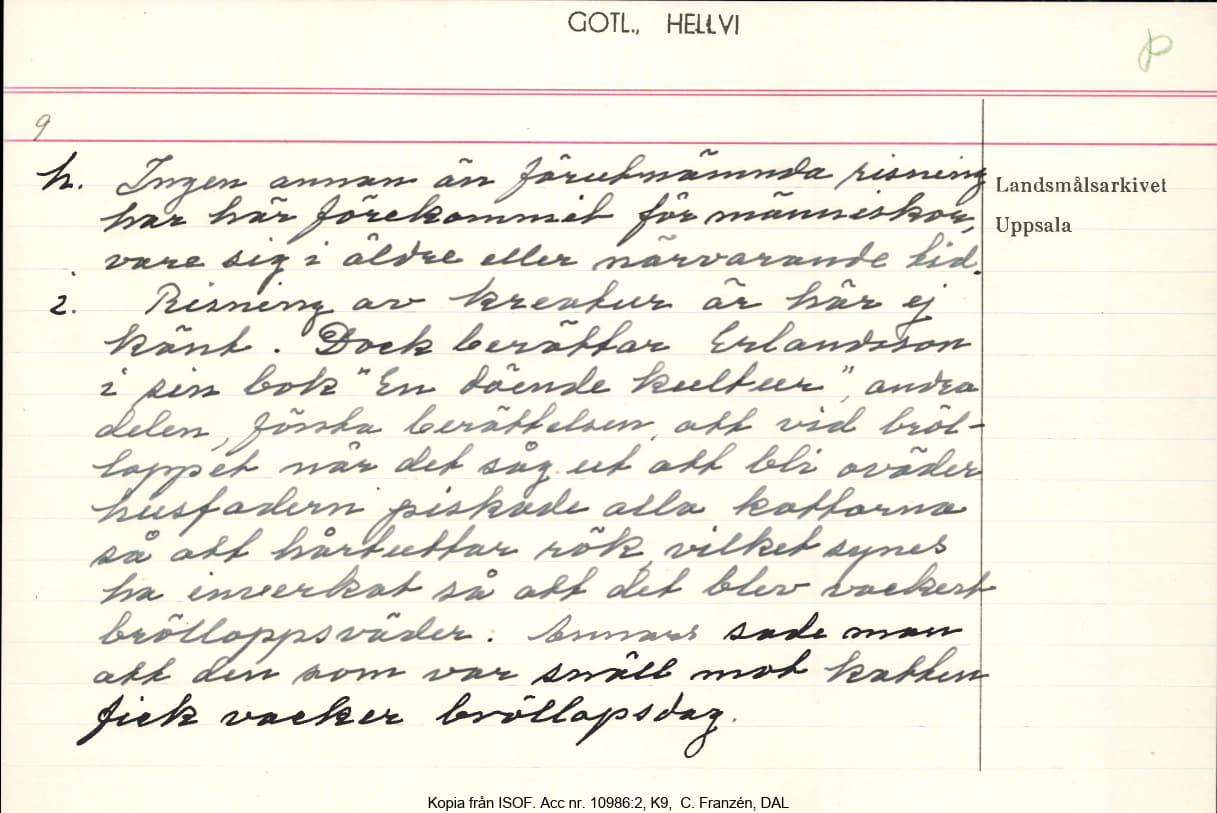 GOTL., HELLVI
P
9
h. Ingen annan än förutnämnda risning
har här förekommit för människor,
vare sig i äldre eller närvarande tid.
i. Risning av kreatur är här ej
känt. Dock berättar Erlandsson
i sin bok "En döende kultur", andra
delen, första berättelsen, att vid bröl-
loppet når det såg ut att bli oväder
husfadern piskade alla kattorna
så att hårtuttar rök, vilket synes
ha inverkat så att det blev vackert
brölloppsväder. Annars sade man
att den som var snäll mot katten
fick vacker bröllopsdag.
Landsmålsarkivet
Uppsala
Kopia från ISOF. Acc nr. 10986:2, K9, C. Franzén, DAL